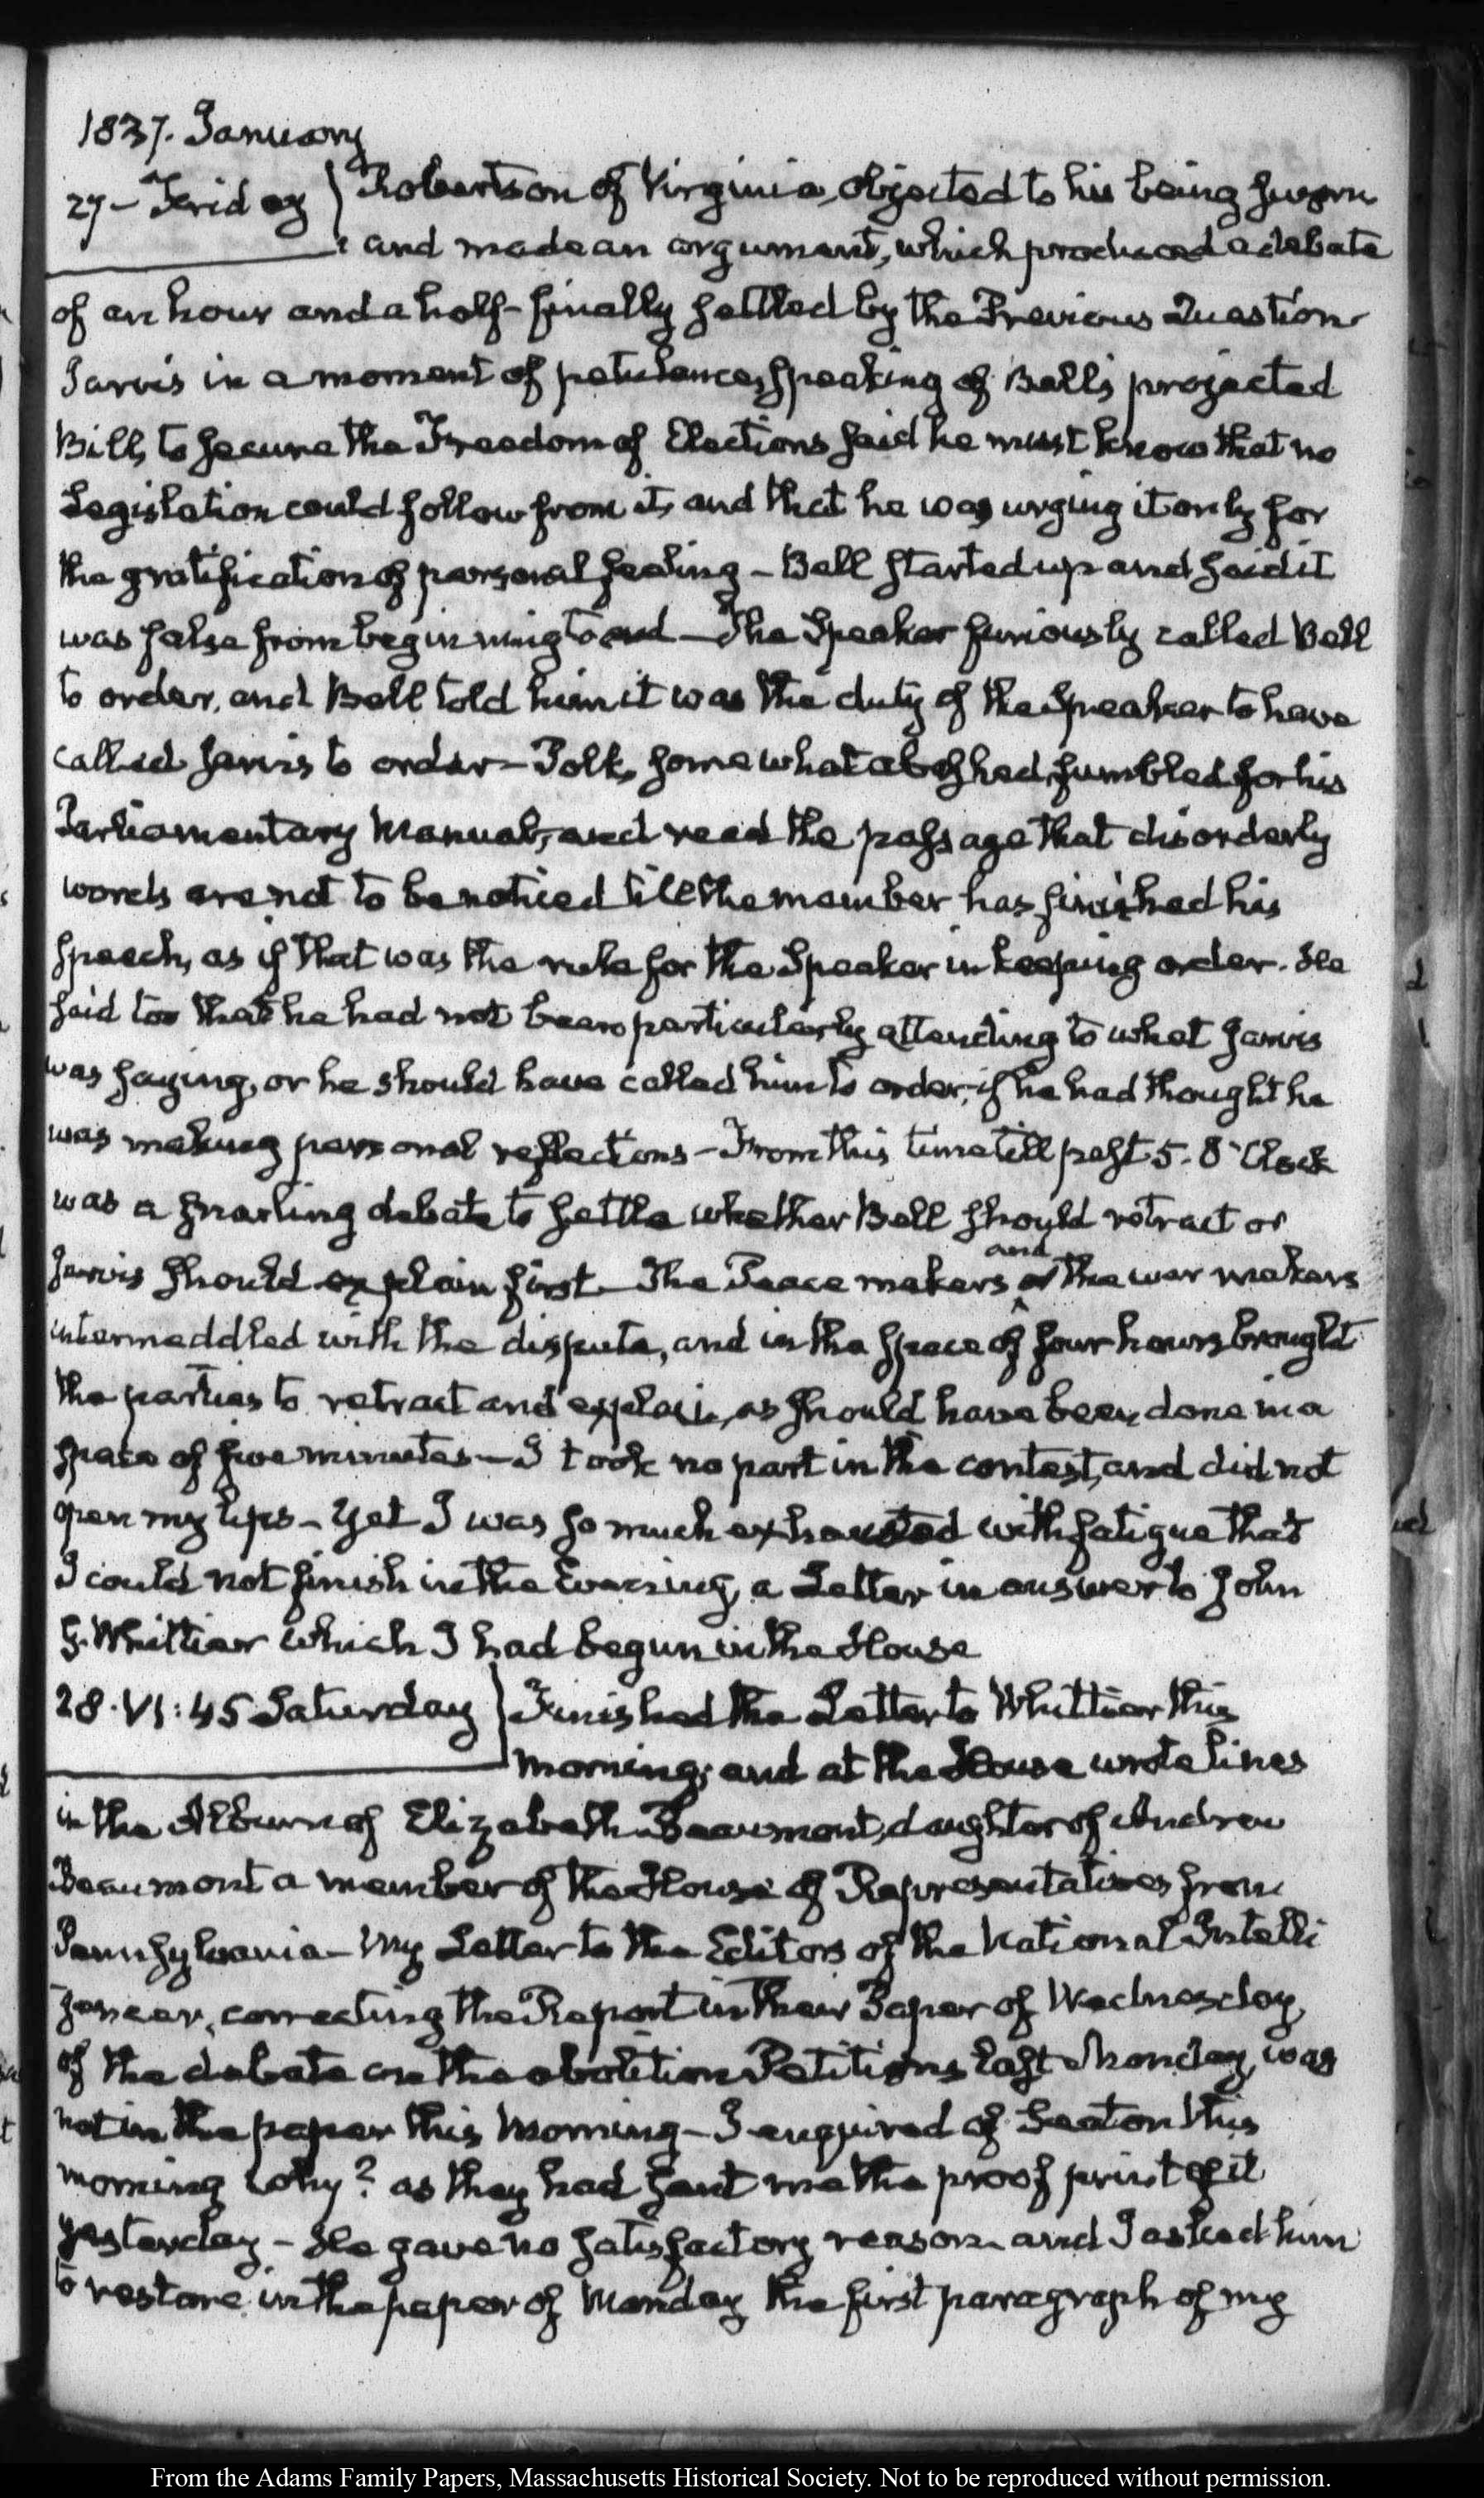 1837. January
27 - Friday } Robertson of Virginia, objected to his being sworn
and made an argument, which produced a debate
of an hour and a half - finally settled by the Previous Question
Jarvis in a moment of petulance, speaking of Bell's projected
Bill, to secure the Freedom of Elections said he must know that no
Legislation could follow from it, and that he was urging it only for
the gratification of personal feeling - Bell started up and said it
was false from beginning to end - The Speaker furiously called Bell
to order, and Bell told him it was the duty of the Speaker to have
called Jarvis to order - Polk, somewhat abashed, fumbled for his
Parliamentary Manual, and read the passage that disorderly
words are not to be noticed till the member has finished his
speech, as if that was the rule for the Speaker in keeping order. He
said too that he had not been particularly attending to what Jarvis
was saying, or he should have called him to order, if he had thought he
was making personal reflections - From this time till past 5. O'Clock
was a snarling debate to settle whether Bell should retract or
Jarvis should explain first - The Peace makers and the war makers
intermeddled with the dispute, and in the space of four hours brought
the parties to retract and explain, as should have been done in a
space of five minutes - I took no part in the contest, and did not
open my lips - Yet I was so much exhausted with fatigue that
I could not finish in the Evening, a Letter in answer to John
G. Whittier which I had begun in the House
28. VI: 45 Saturday } Finished the Letter to Whittier this
morning; and at the House wrote lines
in the Album of Elizabeth Beaumont, daughter of Andrew
Beaumont a member of the House of Representatives from
Pennsylvania - My Letter to the Editors of the National Intelli
gencer, correcting the Report in their Paper of Wednesday,
of the debate on the abolition Petitions last Monday, was
not in the paper this Morning - I enquired of Seaton this
morning why? as they had sent me the proof print of it
yesterday - He gave no satisfactory reason and I asked him
to restore in the paper of Monday the first paragraph of my
From the Adams Family Papers, Massachusetts Historical Society. Not to be reproduced without permission.